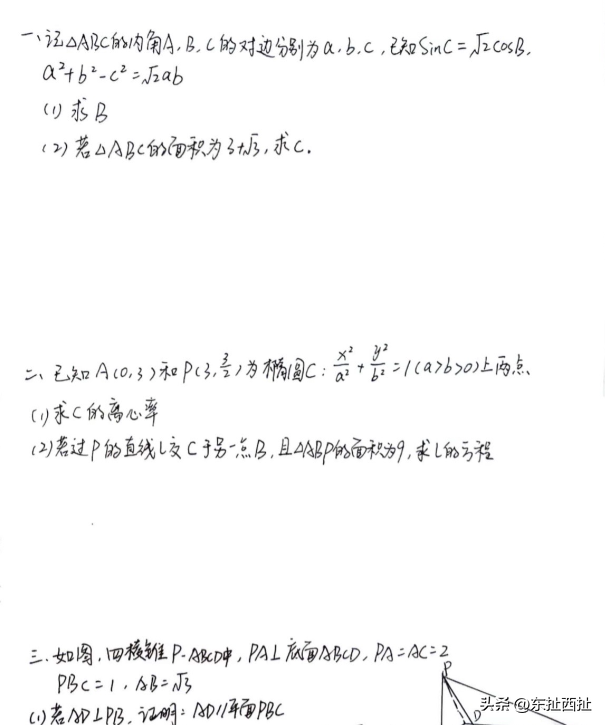 一、记△ABC的内角A,B,C的对边分别为a,b,c,已知SinC=√2cosB,
a²+b²-c²=√2ab
(1) 求B
(2) 若△ABC的面积为3+√3,求C.
二、已知A(0,3)和P(3,3/2)为椭圆C:x²/a²+y²/b²=1(a>b>0)上两点、
(1)求C的离心率
(2)若过P的直线l交C于另一点B,且△ABP的面积为9,求l的方程
三、如图,四棱锥P-ABCD中,PA⊥底面ABCD,PA=AC=2
PBC=1,AB=√3
(1)若AD⊥PB,证明:AD∥平面PBC
P
D
头条@东扯西扯